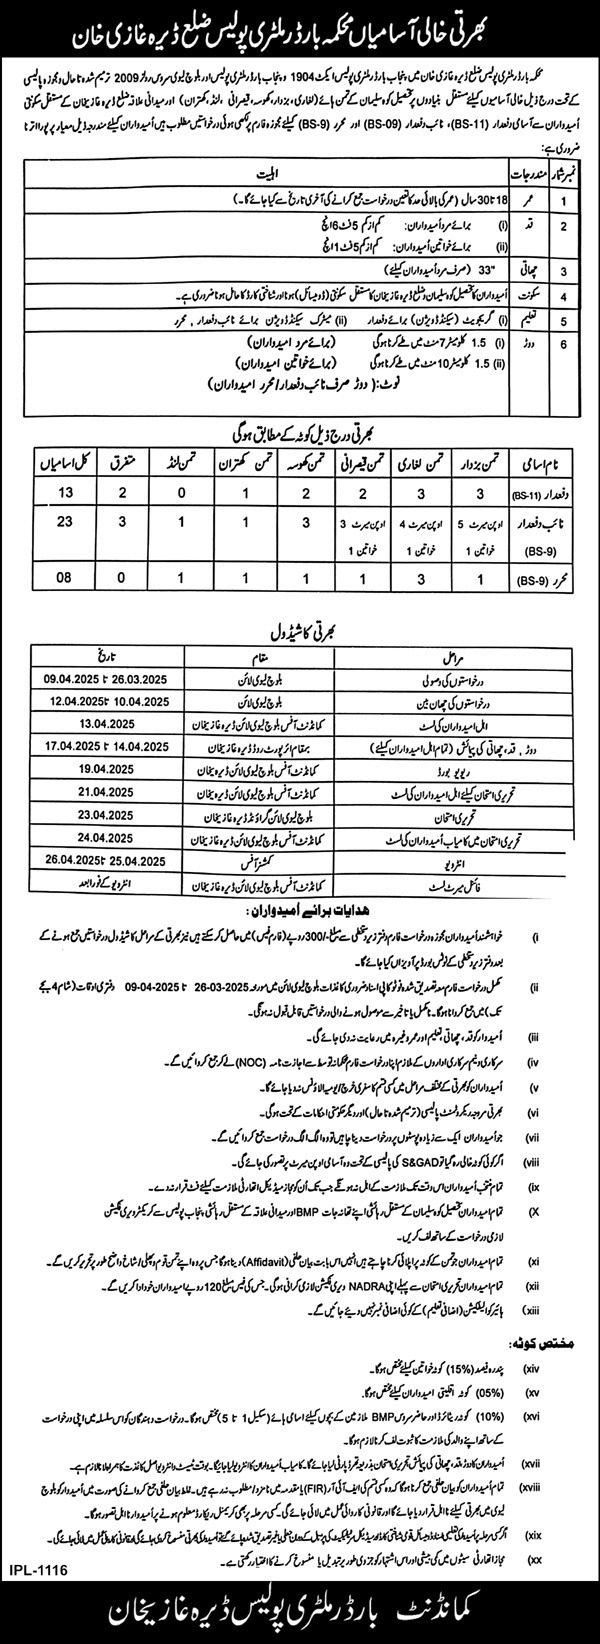 بھرتی خالی آسامیاں محکمہ بارڈر ملٹری پولیس ضلع ڈیرہ غازی خان
محکمہ بارڈر ملٹری پولیس ضلع ڈیرہ غازی خان میں پنجاب بارڈر ملٹری پولیس ایکٹ 1904 و پنجاب بارڈر ملٹری پولیس اور بلوچ لیوی سروس رولز 2009 ترمیم شدہ تا حال و مجوزہ پالیسی
کے تحت درج ذیل خالی آسامیوں کیلئے مستقل بنیادوں پر تحصیل کوہ سلیمان کے تمن ہائے (لغاری، بزدار، کھوسہ، قیصرانی، لنڈ، کھتران) اور میدانی علاقہ ضلع ڈیرہ غازیخان کے مستقل سکونتی
اُمیدواران سے آسامی دفعدار (BS-11)، نائب دفعدار (BS-09) اور محرر (BS-9) کیلئے مجوزہ فارم پر لکھی ہوئی درخواستیں مطلوب ہیں اُمیدواران کیلئے مندرجہ ذیل معیار پر پورا اترنا
ضروری ہے:
نمبر شمار مندرجات اہلیت
1 عمر 18 تا 30 سال (عمر کی بالائی حد کا تعین درخواست جمع کرانے کی آخری تاریخ سے کیا جائے گا۔)
2 قد (i) برائے مرد اُمیدواران: کم از کم 5 فٹ 6 انچ
(ii) برائے خواتین اُمیدواران: کم از کم 5 فٹ 1 انچ
3 چھاتی "33 (صرف مرد اُمیدواران کیلئے)
4 سکونت اُمیدواران کا تحصیل کوہ سلیمان و ضلع ڈیرہ غازیخان کا مستقل سکونتی (ڈومیسائل) ہونا اور شناختی کارڈ کا حامل ہونا ضروری ہے۔
5 تعلیم (i) گریجویٹ (سیکنڈ ڈویژن) برائے دفعدار (ii) میٹرک سیکنڈ ڈویژن برائے نائب دفعدار، محرر
6 دوڑ (i) 1.5 کلومیٹر 7 منٹ میں طے کرنا ہوگی (برائے مرد امیدواران)
(ii) 1.5 کلومیٹر 10 منٹ میں طے کرنا ہوگی (برائے خواتین امیدواران)
نوٹ: (دوڑ صرف نائب دفعدار/محرر امیدواران)
بھرتی درج ذیل کوٹہ کے مطابق ہوگی
نام اسامی تمن بزدار تمن لغاری تمن قیصرانی تمن کھوسہ تمن کھتران تمن لنڈ متفرق کل اسامیاں
دفعدار (BS-11) 3 3 2 2 1 0 2 13
نائب دفعدار (BS-9) اوپن میرٹ 5 خواتین 1 اوپن میرٹ 4 خواتین 1 اوپن میرٹ 3 خواتین 1 3 1 1 3 23
محرر (BS-9) 1 3 1 1 1 1 0 08
بھرتی کا شیڈول
مراحل مقام تاریخ
درخواستوں کی وصولی بلوچ لیوی لائن 26.03.2025 تا 09.04.2025
درخواستوں کی چھان بین بلوچ لیوی لائن 10.04.2025 تا 12.04.2025
اہل امیدواران کی لسٹ کمانڈنٹ آفس بلوچ لیوی لائن ڈیرہ غازیخان 13.04.2025
دوڑ، قد، چھاتی کی پیمائش (تمام اہل امیدواران کیلئے) بمقام ائرپورٹ روڈ ڈیرہ غازیخان 14.04.2025 تا 17.04.2025
ریویو بورڈ کمانڈنٹ آفس بلوچ لیوی لائن ڈیرہ غازیخان 19.04.2025
تحریری امتحان کیلئے اہل امیدواران کی لسٹ کمانڈنٹ آفس بلوچ لیوی لائن ڈیرہ غازیخان 21.04.2025
تحریری امتحان بلوچ لیوی لائن گراؤنڈ ڈیرہ غازیخان 23.04.2025
تحریری امتحان میں کامیاب اُمیدواران کی لسٹ کمانڈنٹ آفس بلوچ لیوی لائن ڈیرہ غازیخان 24.04.2025
انٹرویو کمشنر آفس 25.04.2025 تا 26.04.2025
فائنل میرٹ لسٹ کمانڈنٹ آفس بلوچ لیوی لائن ڈیرہ غازیخان انٹرویو کے فوراً بعد
ھدایات برائے اُمیدواران:
(i خواہشمند اُمیدواران مجوزہ درخواست فارم دفتر زیر دستخطی سے مبلغ -/300 روپے (فارم فیس) میں حاصل کر سکتے ہیں نیز بھرتی کے مراحل کا شیڈول درخواستیں جمع ہونے کے
بعد دفتر زیر دستخطی کے نوٹس بورڈ پر آویزاں کیا جائے گا۔
(ii مکمل درخواست فارم معہ تصدیق شدہ فوٹو کاپی اسناد ضروری کاغذات بلوچ لیوی لائن میں مورخہ 26-03-2025 تا 09-04-2025 دفتری اوقات (شام 4 بجے
تک) میں جمع کروانا ہوگا۔ نامکمل یا تاخیر سے موصول ہونے والی درخواستیں قابل قبول نہ ہونگی۔
(iii اُمیدوار کو قد، چھاتی، تعلیم اور عمر وغیرہ میں رعایت نہ دی جائے گی۔
(iv سرکاری و نیم سرکاری اداروں کے ملازم اپنا درخواست فارم محکمانہ توسط سے اجازت نامہ (NOC) لے کر جمع کروائیں گے۔
(v اُمیدوار کو بھرتی کے مختلف مراحل میں کسی قسم کا سفری خرچ/یومیہ الاؤنس نہ دیا جائے گا۔
(vi بھرتی مروجہ ریکروٹمنٹ پالیسی (ترمیم شدہ تا حال) اور دیگر حکومتی احکامات کے تحت ہوگی۔
(vii جو اُمیدواران ایک سے زیادہ پوسٹوں پر درخواست دینا چاہیں تو وہ الگ الگ درخواست جمع کروائیں گے۔
(viii اگر کوئی کوٹہ خالی رہ گیا تو S&GAD کی پالیسی کے تحت وہ آسامی اوپن میرٹ پر تصور کی جائے گی۔
(ix تمام منتخب اُمیدواران اس وقت تک ملازمت کے اہل نہ ہونگے جب تک اُن کو مجاز میڈیکل اتھارٹی ملازمت کیلئے فٹ قرار نہ دے۔
(X تمام اُمیدواران تحصیل کوہ سلیمان کے مستقل رہائشی اپنے تھانہ جات BMP اور میدانی علاقہ کے مستقل رہائشی پنجاب پولیس سے کریکٹر ویری فکیشن
لازمی درخواست کے ساتھ لف کریں۔
(xi تمام اُمیدواران جو تمن کے کوٹہ پر اپلائی کرنا چاہتے ہیں انہیں اس بابت بیان حلفی (Affidavit) دینا ہوگا جس پر وہ اپنے تمن قوم و چھلی/شاخ واضح طور پر تحریر کریں گے۔
(xii تمام اُمیدواران تحریری امتحان سے پہلے اپنی NADRA ویری فکیشن لازمی کرانی ہوگی۔ جس کی فیس مبلغ 120 روپے امیدواران خود ادا کریں گے۔
(xiii ہائیر کوالیفکیشن (اضافی تعلیم) کے کوئی اضافی نمبر نہیں دیئے جائیں گے۔
مختص کوٹہ:
(xiv پندرہ فیصد (15%) کوٹہ خواتین کیلئے مختص ہوگا۔
(xv (05%) کوٹہ اقلیتی امیدواران کیلئے مختص ہوگا۔
(xvi (10%) کوٹہ ریٹائرڈ اور حاضر سروس BMP ملازمین کے بچوں کیلئے اسامی ہائے (سکیل 1 تا 5) مختص ہوگا۔ درخواست دہندگان کو اس سلسلہ میں اپنی درخواست
کے ساتھ اپنے والد کی ملازمت کا ثبوت لف کرنا لازم ہوگا۔
(xvii اُمیدواران کا دوڑ، قد، چھاتی کی پیمائش تحریری امتحان بذریعہ تھرڈ پارٹی لیا جائے گا۔ کامیاب اُمیدواران کا انٹرویو لیا جائیگا۔ بوقت ٹیسٹ و انٹرویو اصل کاغذات ہمراہ لانا لازم ہے۔
(xviii تمام اُمیدواران کو بیان حلفی جمع کرانا ہوگا کہ وہ کسی قسم کی ایف آئی آر (FIR) یا مقدمہ میں نامزد و مطلوب نہ رہے ہیں۔ غلط بیان حلفی جمع کروانے کی صورت میں اُمیدوار کو بلوچ
لیوی میں بھرتی کیلئے نااہل قرار دیا جائے گا اور قانونی کارروائی عمل میں لائی جائے گی۔ کسی مرحلہ پر بھی کریمنل ریکارڈ معلوم ہونے پر اُمیدوار نااہل تصور ہوگا۔
(xix اگر کسی مرحلہ پر اُمیدوار کی تعلیمی اسناد ڈومیسائل قومی شناختی کارڈ اور میڈیکل سرٹیفکیٹ کی پڑتال کے دوران جعلی یا غیر تصدیق شدہ پائے گئے تو اُمیدوار کی بھرتی منسوخ کر دی جائے گی اور قانونی کارروائی عمل میں لائی جائے گی۔
(xx مجاز اتھارٹی سیٹوں میں کمی بیشی اور اس اشتہار کو جزوی طور پر تبدیل یا منسوخ کرنے کا اختیار رکھتی ہے۔
IPL-1116
کمانڈنٹ بارڈر ملٹری پولیس ڈیرہ غازیخان